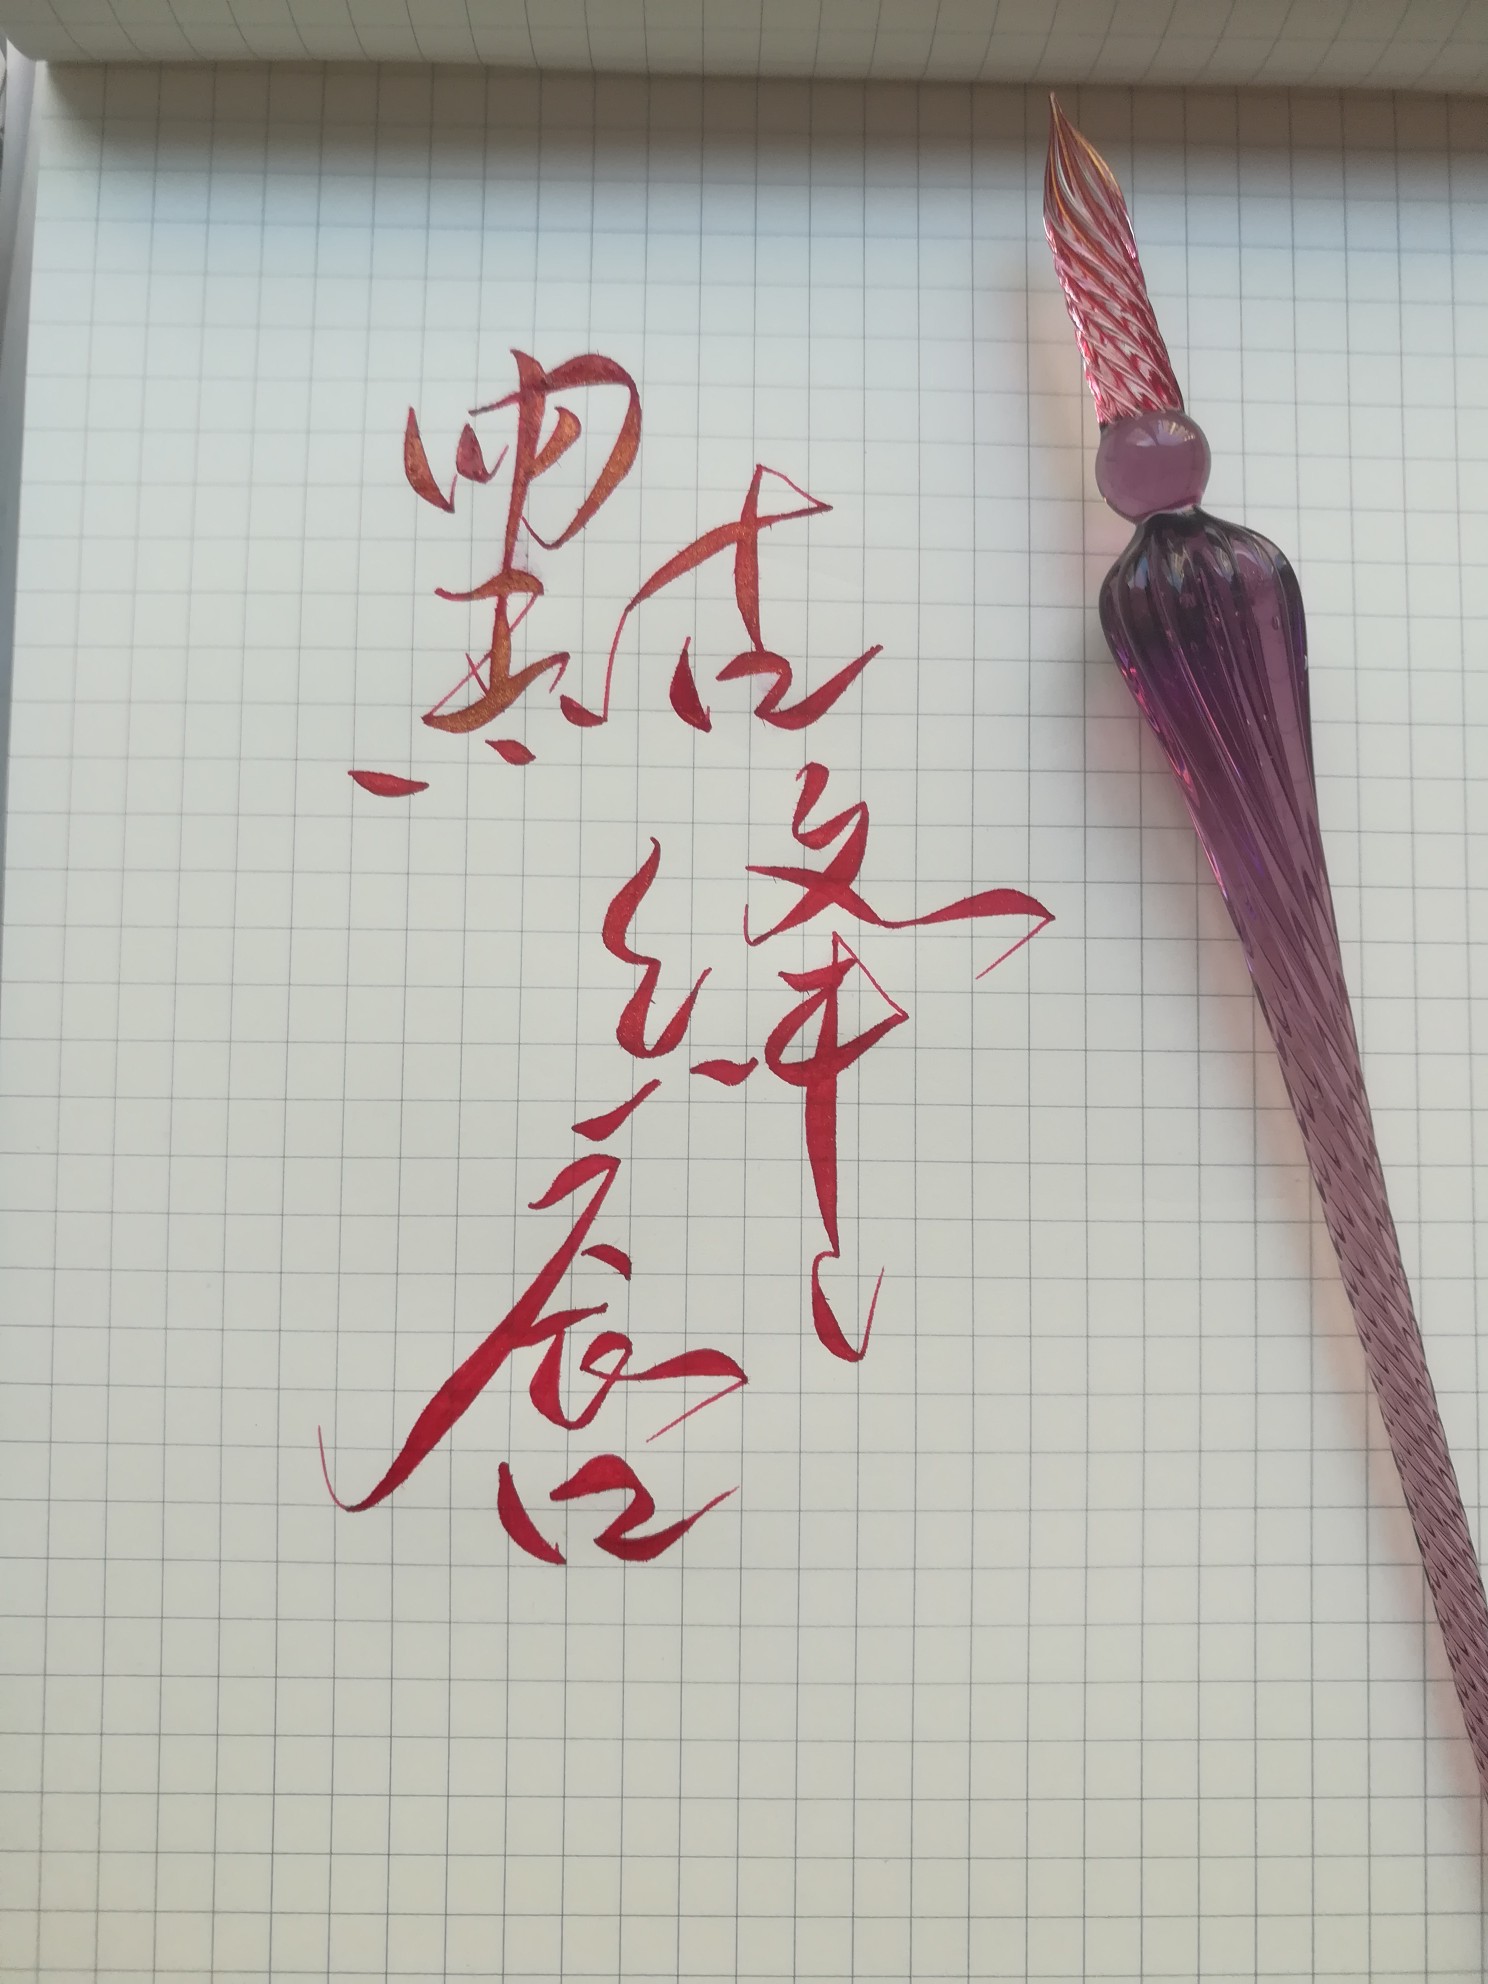 點絳唇